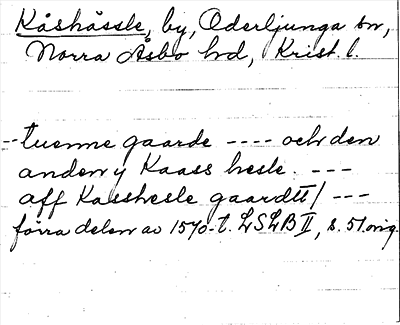 Kåshässle, by, Oderljunga sn,
Norra Åsbo hd, Krist. l.
-- tuenne gaarde ---- och den
anden y Kaass hesle. ---
aff Kasshesle gaardtt / ---
förra delen av 1540-t. LSLB II, s. 51. orig.